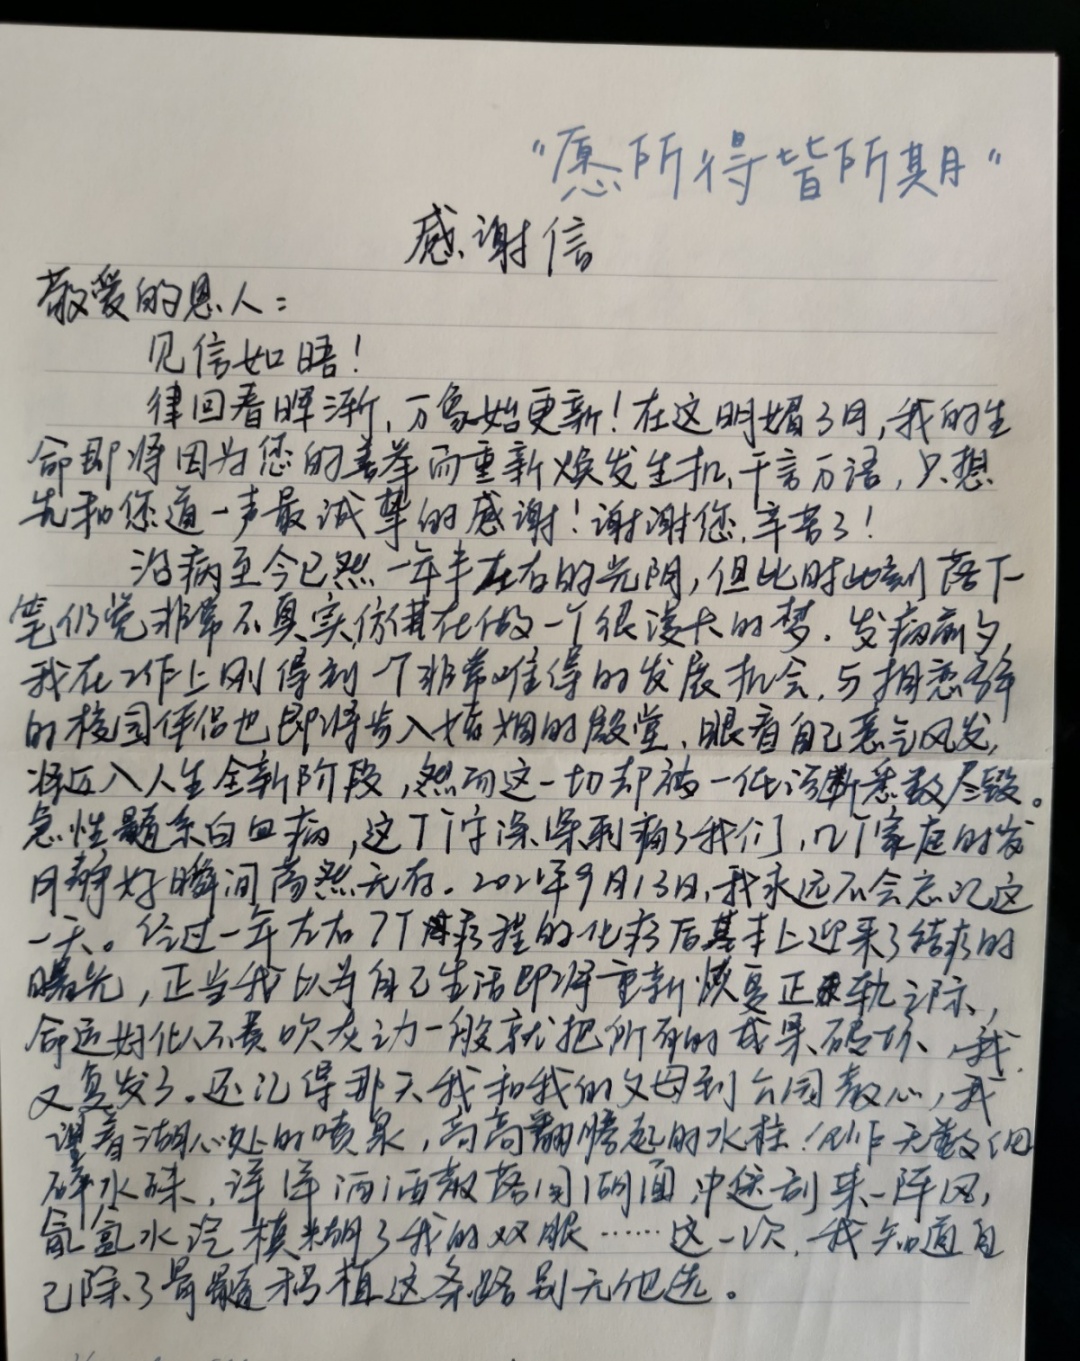 “愿所得皆所期”
感谢信
敬爱的恩人：
见信如晤！
律回春晖渐，万象始更新！在这明媚3月，我的生
命即将因为您的善举而重新焕发生机，千言万语，只想
先和您道一声最诚挚的感谢！谢谢您，辛苦了！
治病至今已然一年半左右的光阴，但此时此刻落下
笔仍觉非常不真实，仿佛在做一个很漫长的梦。发病前夕，
我在工作上刚得到一个非常难得的发展机会，与相恋多年
的校园伴侣也即将步入婚姻的殿堂、眼看自己意气风发，
将迈入人生全新阶段，然而这一切却被一纸诊断悉数尽毁。
急性髓系白血病，这个字深深刺痛了我们，几个家庭的岁
月静好瞬间荡然无存。2021年9月13日，我永远不会忘记这
一天。经过一年左右7个疗程的化疗后基本上迎来了结疗的
曙光，正当我以为自己生活即将重新恢复正轨之际，
命运好似不费吹灰之力一般就把所有的成果破坏、我
又复发了。还记得那天我和我的父母到公园散心，我
望着湖心处的喷泉，高高翻腾起的水柱，化作无数细
碎水珠，洋洋洒洒散落回湖面冲，刮来一阵风，
氤氲水汽模糊了我的双眼……这一次，我知道自
己除了骨髓移植这条路别无他选。